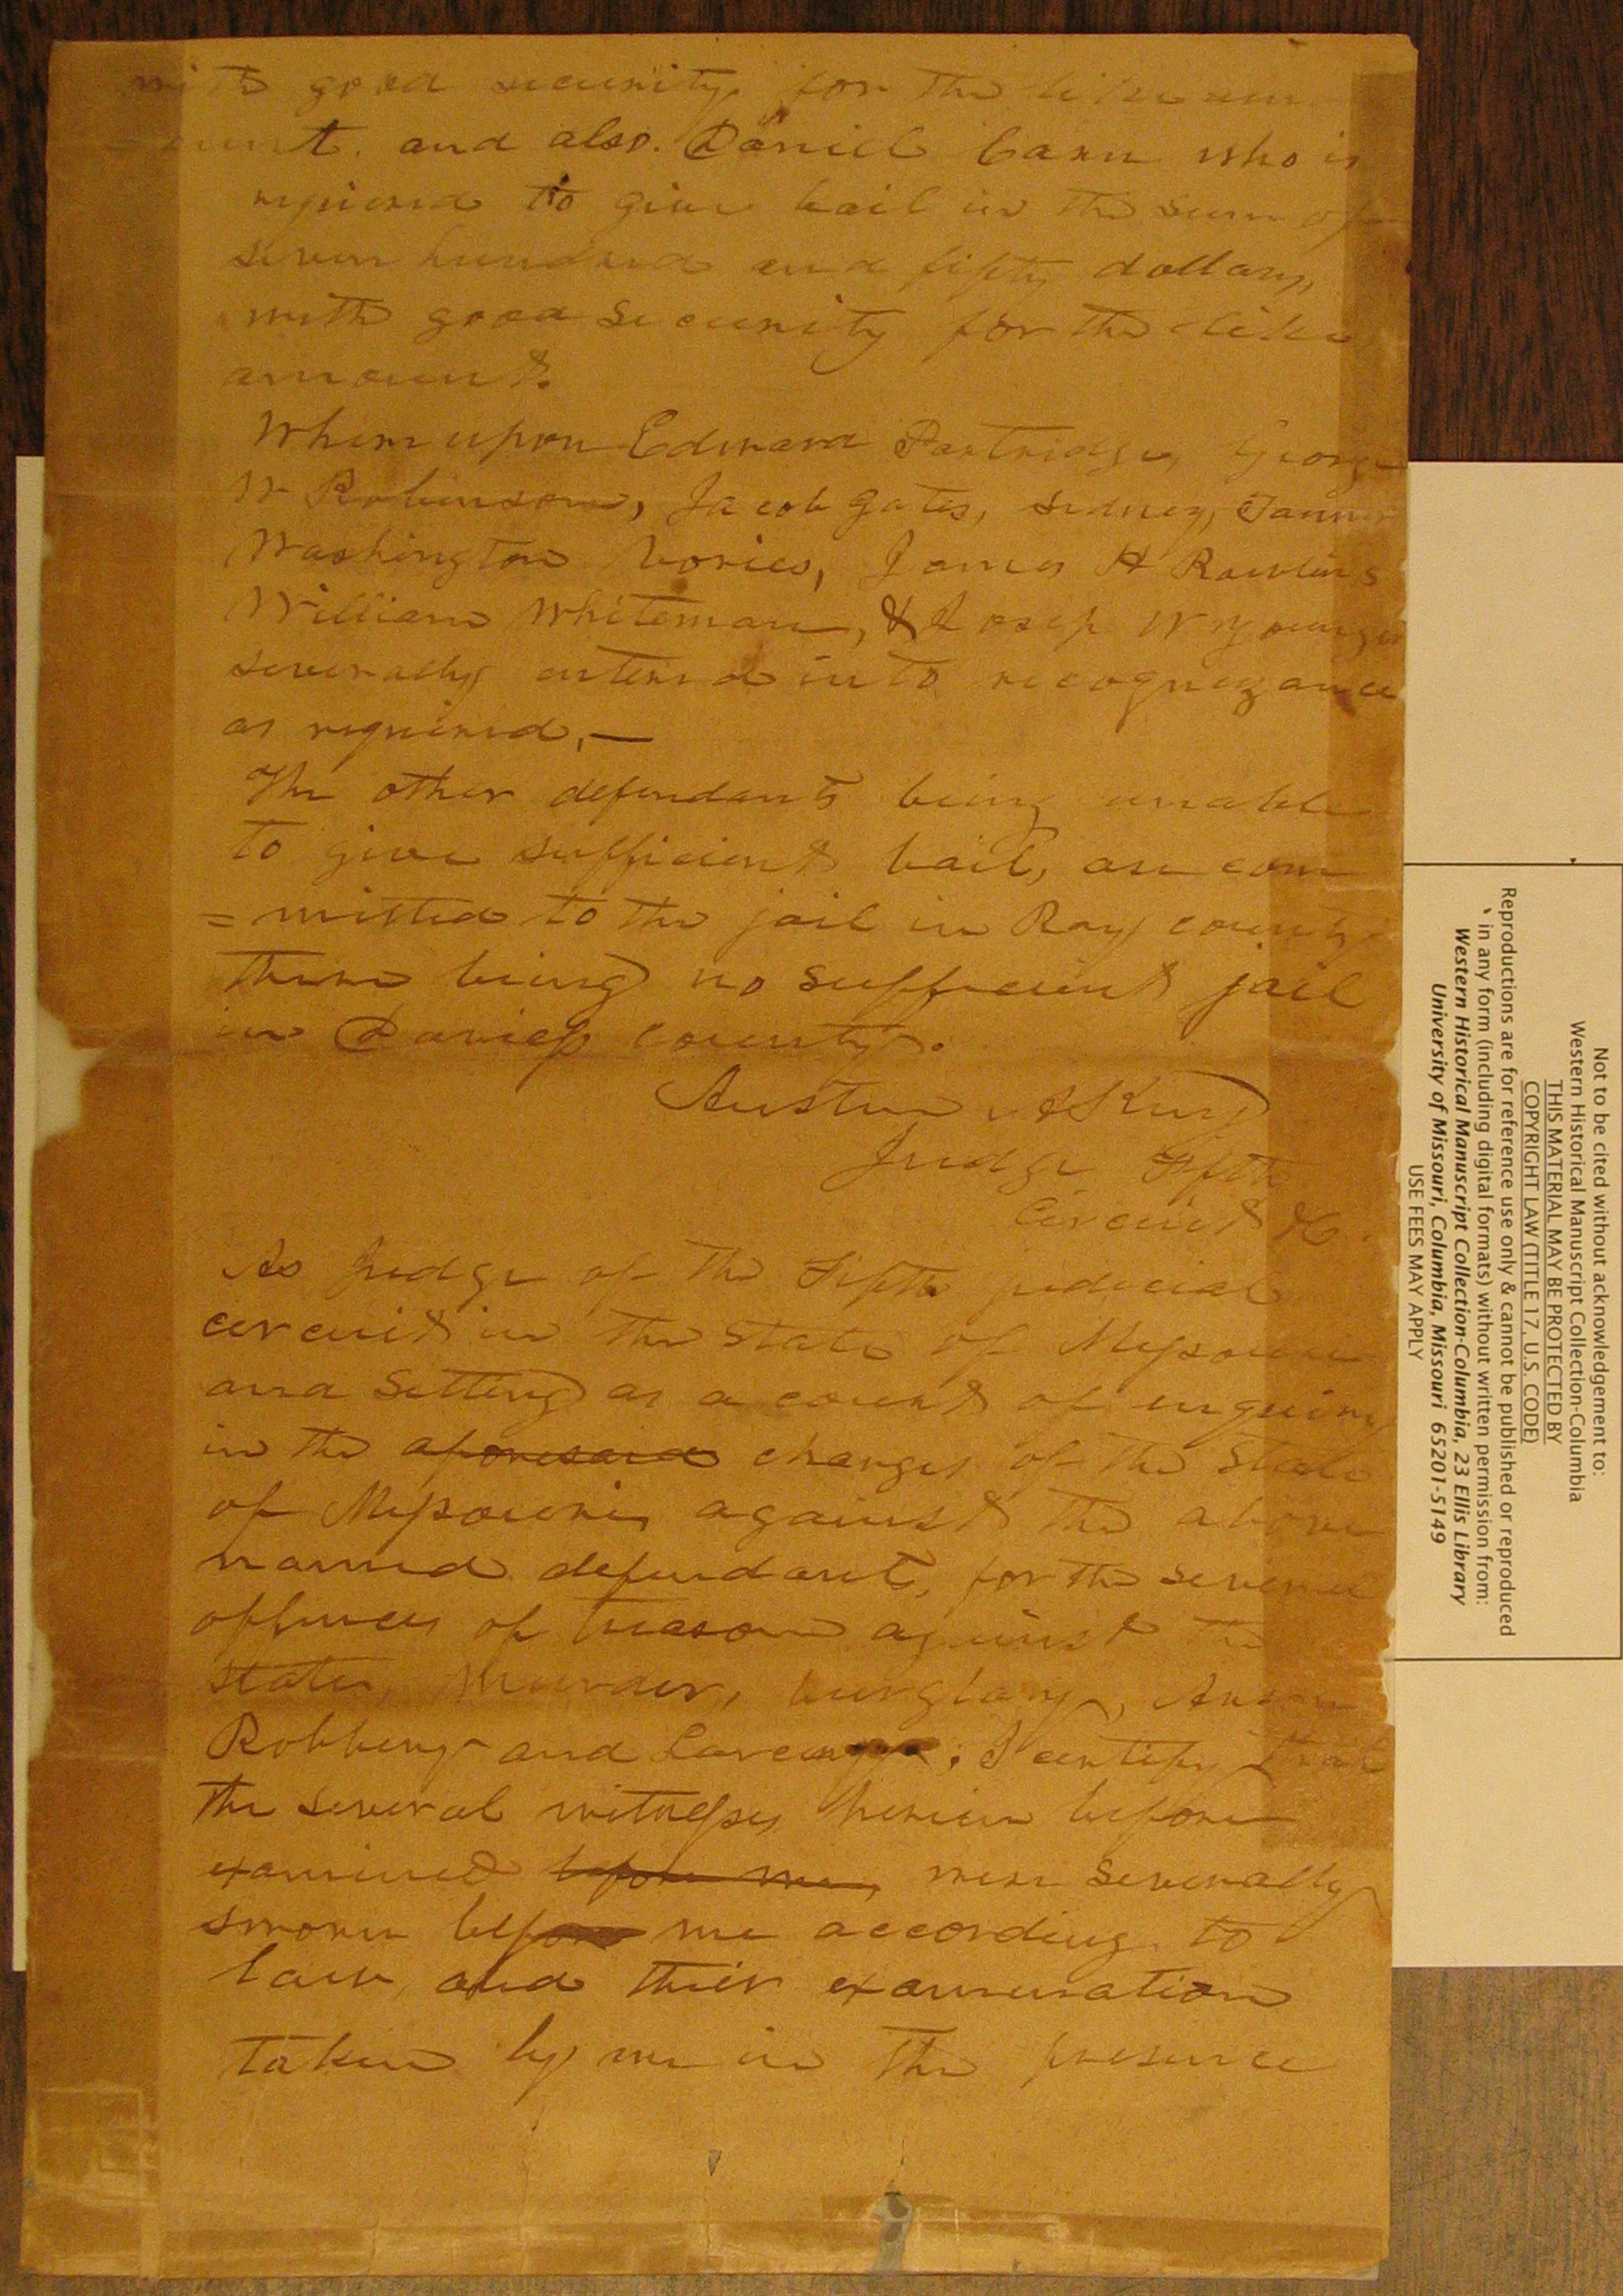 with good security for the like am
= ount. and also. Daniel Carn who is
required to give bail in the sum of
seven hundred and fifty dollars,
with good security for the like
amount.
Whereupon Edward Partridge, George
W Robinson, Jacob Gates, Sidney, Tanner
Washington Vories, James H Rawlins
William Whiteman, & Josep W Younger
severally entered into recognizance
as required,—
The other defendants being unable
to give sufficient bail, are com
= mitted to the jail in Ray county
there being no sufficient jail
in Daviess county.
Austin A King
Judge Fifth
Circuit &c.
As Judge of the Fifth judicial
circuit in the State of Missouri
and setting as a court of enquiry
in the aforesaid charges of the State
of Missouri, against the above
named defendants, for the several
offences of treason against the
state, Murder, burglary, Arson
Robbery and Larceny. I certify that
the several witnesses herein before
examined before me, were severally
sworn before me according to
law, and their examination
taken by me in the presence
Not to be cited without acknowledgement to:
Western Historical Manuscript Collection-Columbia
THIS MATERIAL MAY BE PROTECTED BY
COPYRIGHT LAW (TITLE 17, U.S. CODE)
Reproductions are for reference use only & cannot be published or reproduced
in any form (including digital formats) without written permission from:
Western Historical Manuscript Collection-Columbia, 23 Ellis Library
University of Missouri, Columbia, Missouri 65201-5149
USE FEES MAY APPLY